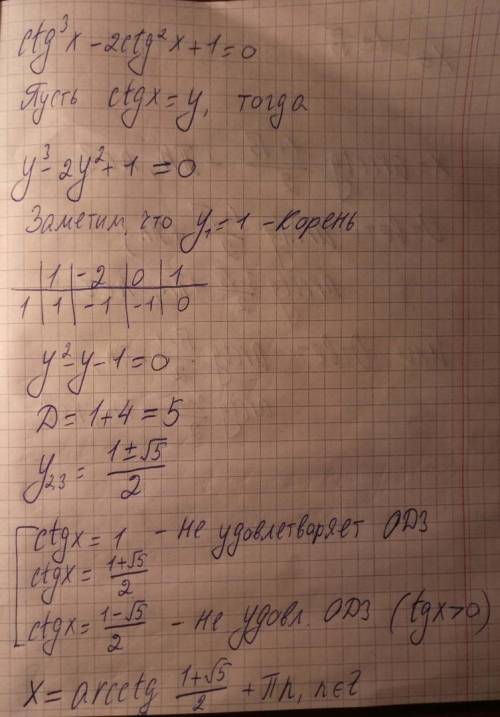 ctg³x - 2ctg²x + 1 = 0
Пусть ctgx = y, тогда
y³ - 2y² + 1 = 0
Заметим, что y₁ = 1 - корень
| 1 | -2 | 0 | 1
1 | 1 | -1 | -1 | 0
y² - y - 1 = 0
D = 1 + 4 = 5
y₂,₃ = (1 ± √5)/2
[ctgx = 1 - не удовлетворяет ОДЗ
ctgx = (1+√5)/2
ctgx = (1-√5)/2 - не удовл. ОДЗ (tgx>0)
x = arcctg (1+√5)/2 + Пn, n∈Z